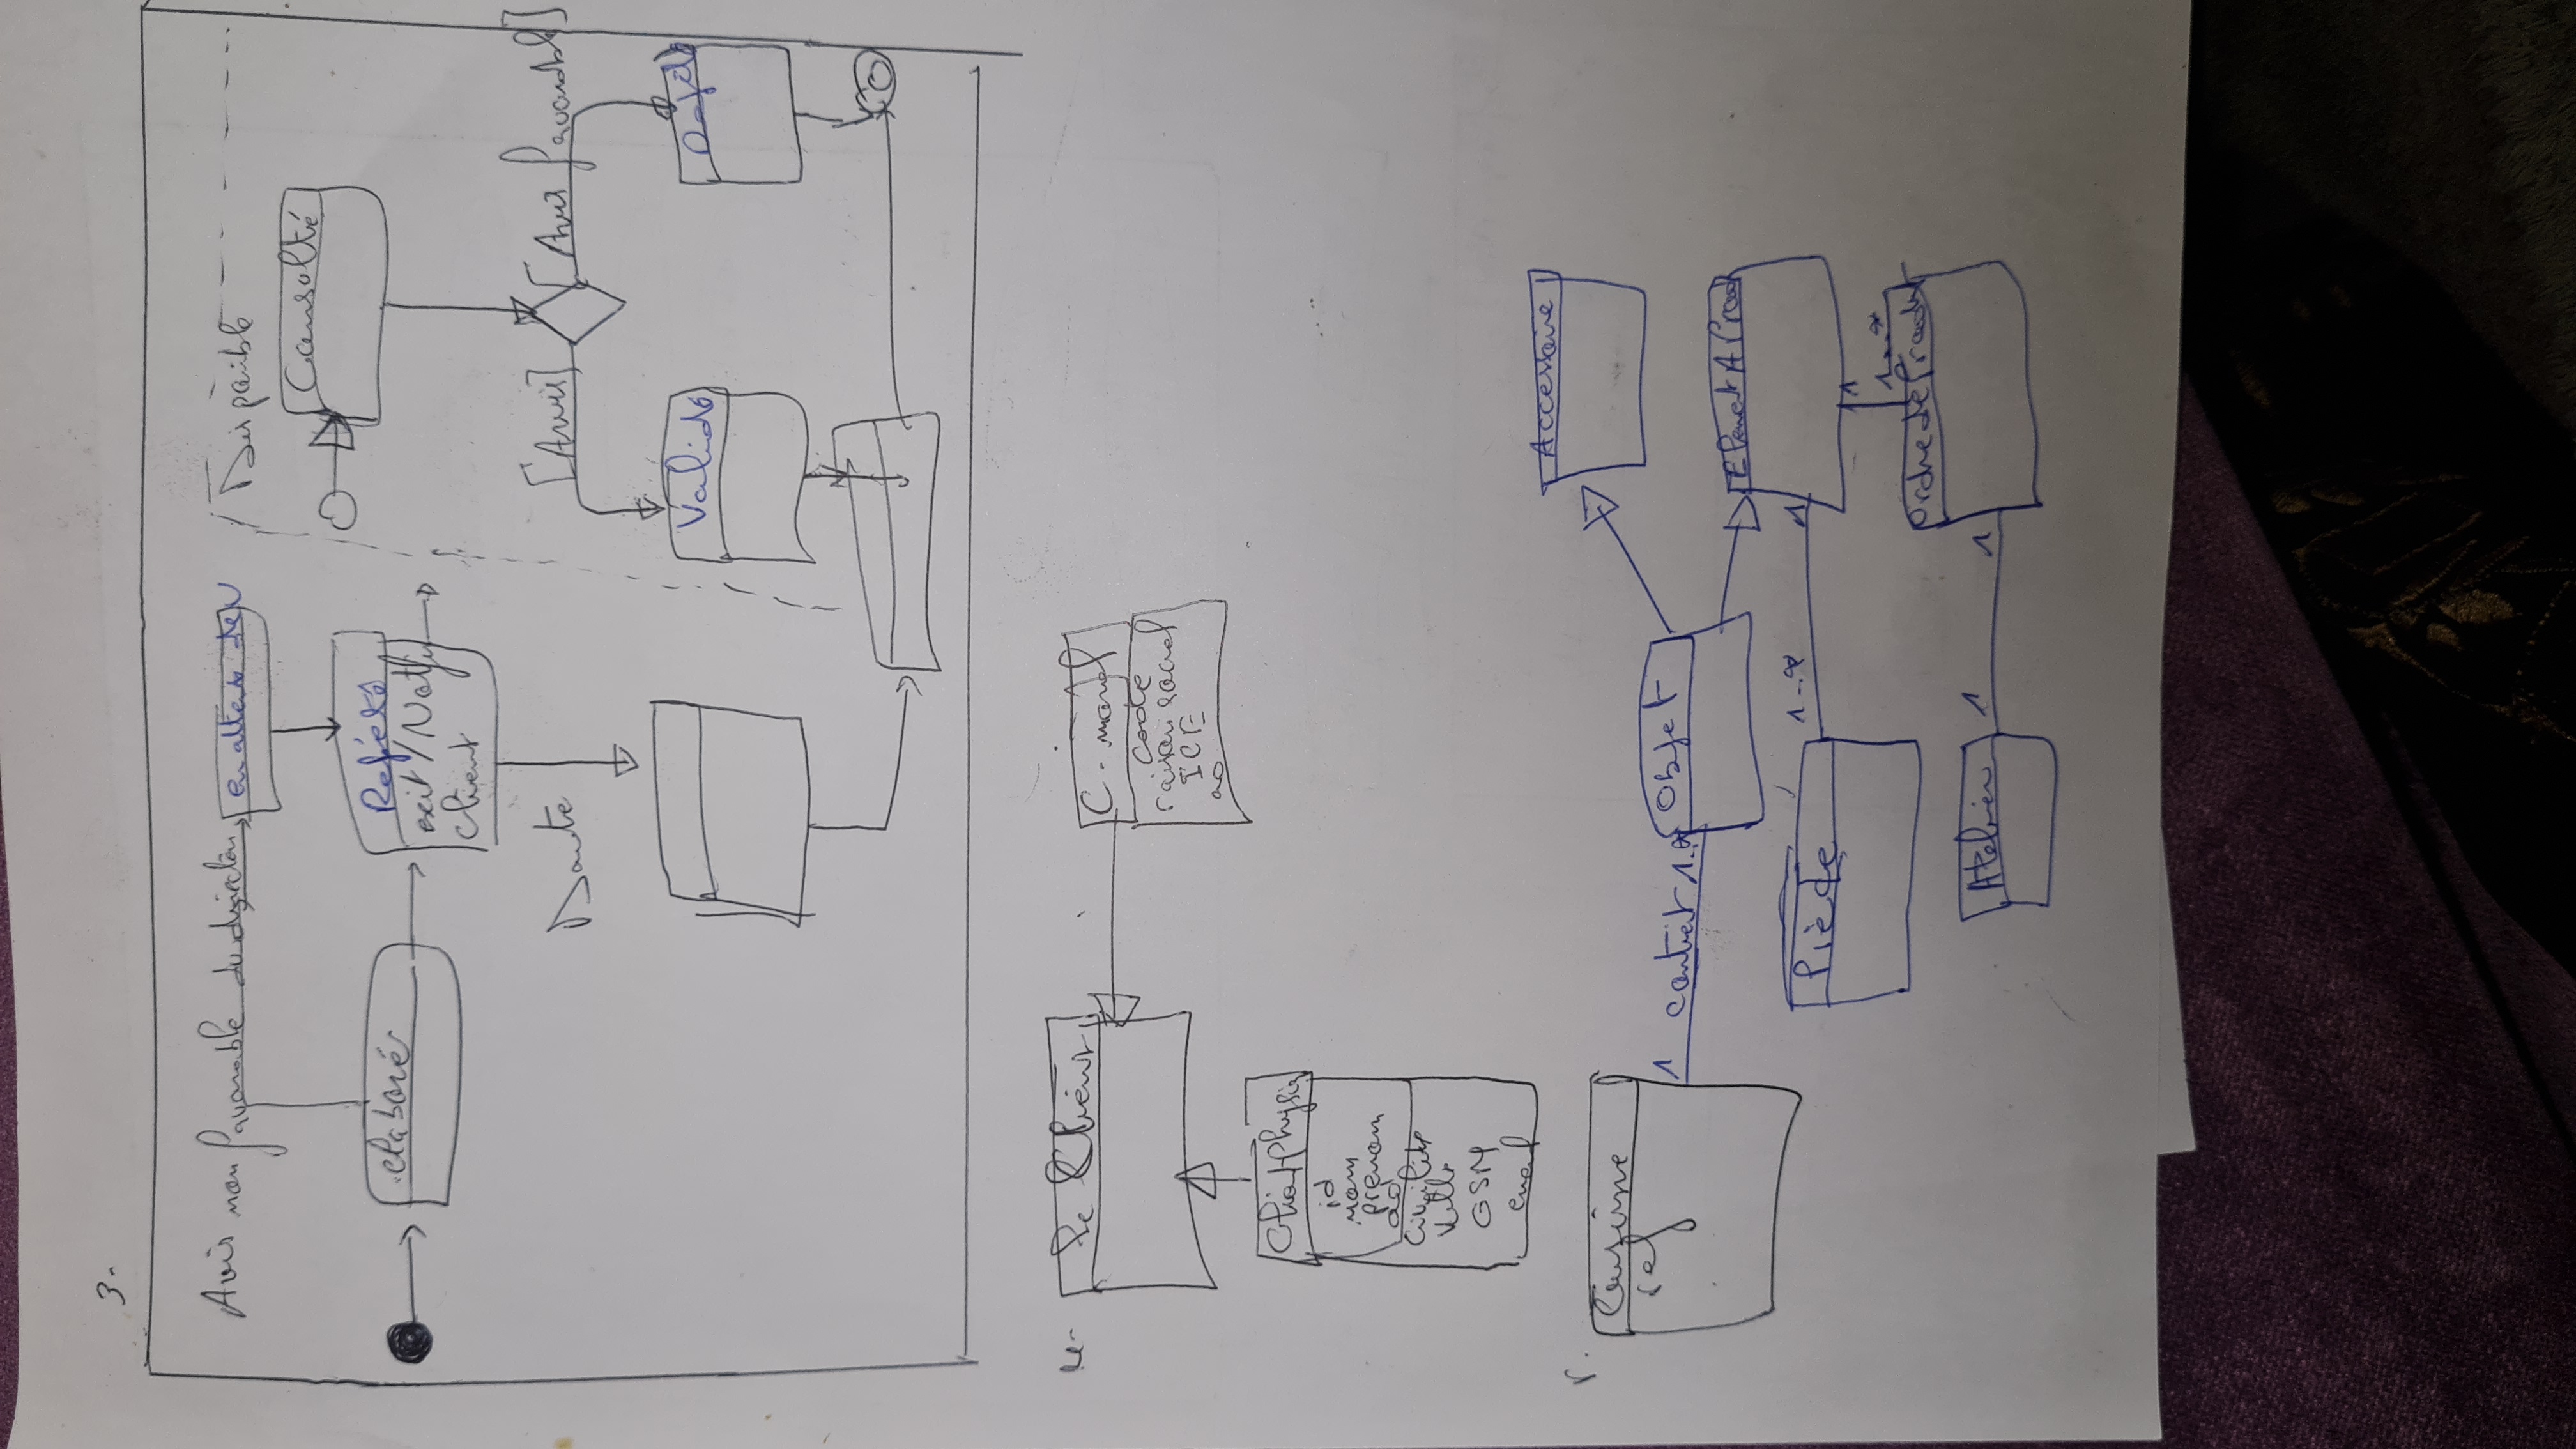 3-
Avis non favorable du direction
en attente
Disponible
Consulté
elaboré
Rejeté
exit / Notif
client
Doute
[Avis]
[Avis favorable]
Validé
4-
Le Client
C. moral
code
raison social
ICE
ad
Client Physiq
id
nom
prenom
ad
Civilité
Ville
GSM
email
5-
Cuisine
ref
1 contient 1..*
Objet
Accessoire
Element A Prod
Pièce
1..* 1
1
1..*
Ordre de Product
Atelier
1 1